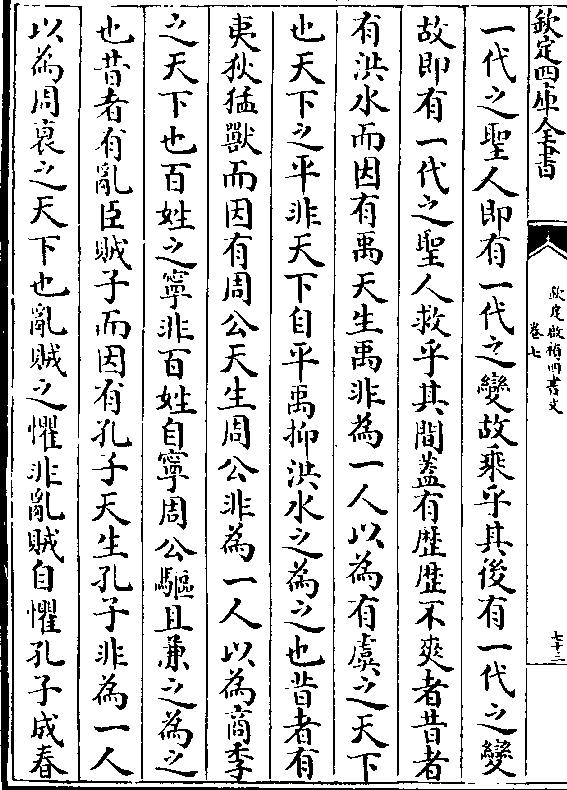 欽定四庫全書
欽定啟禎四書文
卷七
七十三
一代之聖人即有一代之變故乘乎其後有一代之變
故即有一代之聖人救乎其間蓋有歴歴不爽者昔者
有洪水而因有禹天生禹非為一人以為有虞之天下
也天下之平非天下自平禹抑洪水之為之也昔者有
夷狄猛獸而因有周公天生周公非為一人以為商季
之天下也百姓之寧非百姓自寧周公驅且兼之為之
也昔者有亂臣賊子而因有孔子天生孔子非為一人
以為周衰之天下也亂賊之懼非亂賊自懼孔子成春